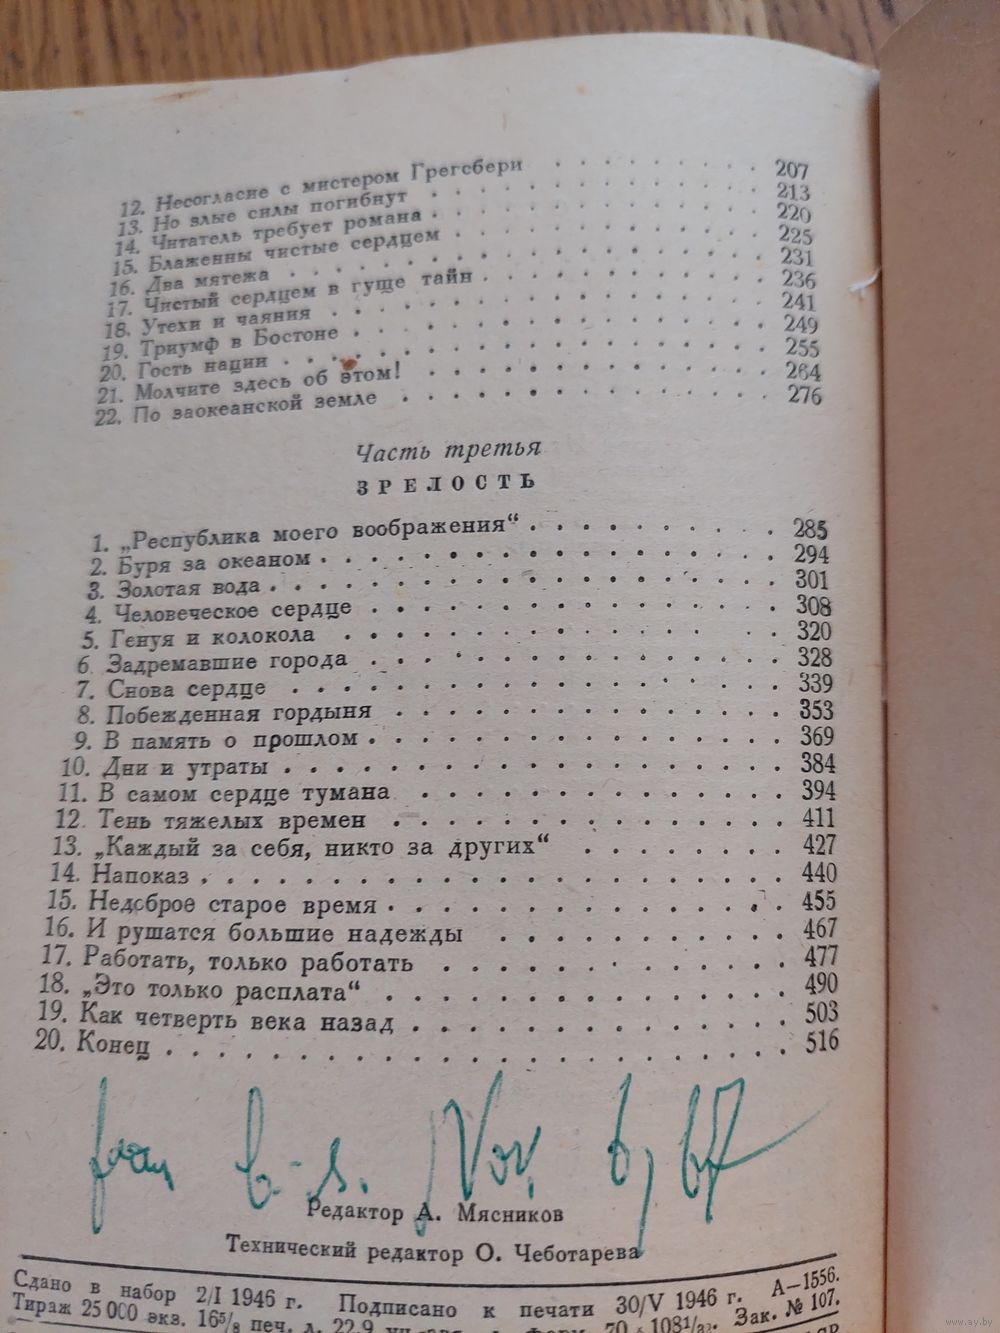 12. Несогласие с мистером Грегсбери . . . . . . . . . 207
13. Но злые силы погибнут . . . . . . . . . . . . 213
14. Читатель требует романа . . . . . . . . . . . . 220
15. Блаженны чистые сердцем . . . . . . . . . . . . 225
16. Два мятежа . . . . . . . . . . . . . . . . 231
17. Чистый сердцем в гуще тайн . . . . . . . . . . 236
18. Утехи и чаяния . . . . . . . . . . . . . . . 241
19. Триумф в Бостоне . . . . . . . . . . . . . . 249
20. Гость нации . . . . . . . . . . . . . . . . 255
21. Молчите здесь об этом! . . . . . . . . . . . . 264
22. По заокеанской земле . . . . . . . . . . . . . 276
Часть третья
ЗРЕЛОСТЬ
1. „Республика моего воображения“ . . . . . . . . . . 285
2. Буря за океаном . . . . . . . . . . . . . . . 294
3. Золотая вода . . . . . . . . . . . . . . . . 301
4. Человеческое сердце . . . . . . . . . . . . . 308
5. Генуя и колокола . . . . . . . . . . . . . . 320
6. Задремавшие города . . . . . . . . . . . . . . 328
7. Снова сердце . . . . . . . . . . . . . . . . 339
8. Побежденная гордыня . . . . . . . . . . . . . 353
9. В память о прошлом . . . . . . . . . . . . . . 369
10. Дни и утраты . . . . . . . . . . . . . . . . 384
11. В самом сердце тумана . . . . . . . . . . . . 394
12. Тень тяжелых времен . . . . . . . . . . . . . 411
13. „Каждый за себя, никто за других“ . . . . . . . . 427
14. Напоказ . . . . . . . . . . . . . . . . . . 440
15. Недоброе старое время . . . . . . . . . . . . 455
16. И рушатся большие надежды . . . . . . . . . . 467
17. Работать, только работать . . . . . . . . . . . 477
18. „Это только расплата“ . . . . . . . . . . . . . 490
19. Как четверть века назад . . . . . . . . . . . . 503
20. Конец . . . . . . . . . . . . . . . . . . . 516
Nov.
Редактор А. Мясников
Технический редактор О. Чеботарева
Сдано в набор 2/I 1946 г. Подписано к печати 30/V 1946 г. А—1556.
Тираж 25 000 экз. 16⁵/₈ печ. л. 22,9 Зак. № 107.
www.ay.by